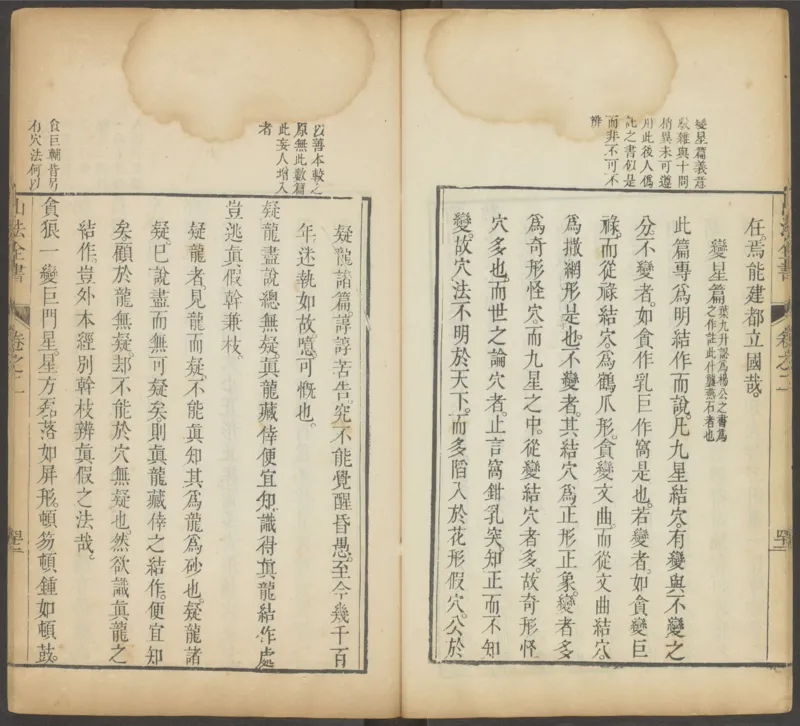 變星篇義意
駁雜與十問
稍異未可遵
用此後人僞
託之書似是
而非不可不
辨
任。焉能建都立國哉。
變星篇葉九升認為楊公之書爲之作註此什襲燕石者也
此篇專爲明結作而說。凡九星結穴。有變與不變之
分。不變者。如貪作乳巨作窩是也。若變者。如貪變巨
祿。而從祿結穴。爲鶴爪形。貪變文曲。而從文曲結穴。
爲撒網形是也。不變者。其結穴爲正形正象。變者多
爲奇形怪穴。而九星之中。從變結穴者多。故奇形怪
穴多也。而世之論穴者。止言窩鉗乳突。知正而不知
變。故穴法不明於天下。而多陷入於花形假穴。公於
山法全書
卷之二
以善本較之
原無此數篇
此妄人增入
者
疑龍諸篇。諄諄苦告。究不能覺醒昏愚。至今幾千百
年。迷執如故。噫。可慨也。
疑龍盡說總無疑。眞龍藏倖便宜知。識得眞龍結作處
豈逃眞假幹兼枝。
疑龍者。見龍而疑。不能眞知其爲龍爲砂也。疑龍諸
疑。巳說盡而無可疑矣。則眞龍藏倖之結作。便宜知
矣。顧於龍無疑。却不能於穴無疑也。然欲識眞龍之
結作。豈外本經別幹枝辨眞假之法哉。
貪巨輔昔另
有穴法何以
貪狼一變巨門星。星方磊落如屏形。頓笏頓鍾如頓鼓。
山法全書
卷之二